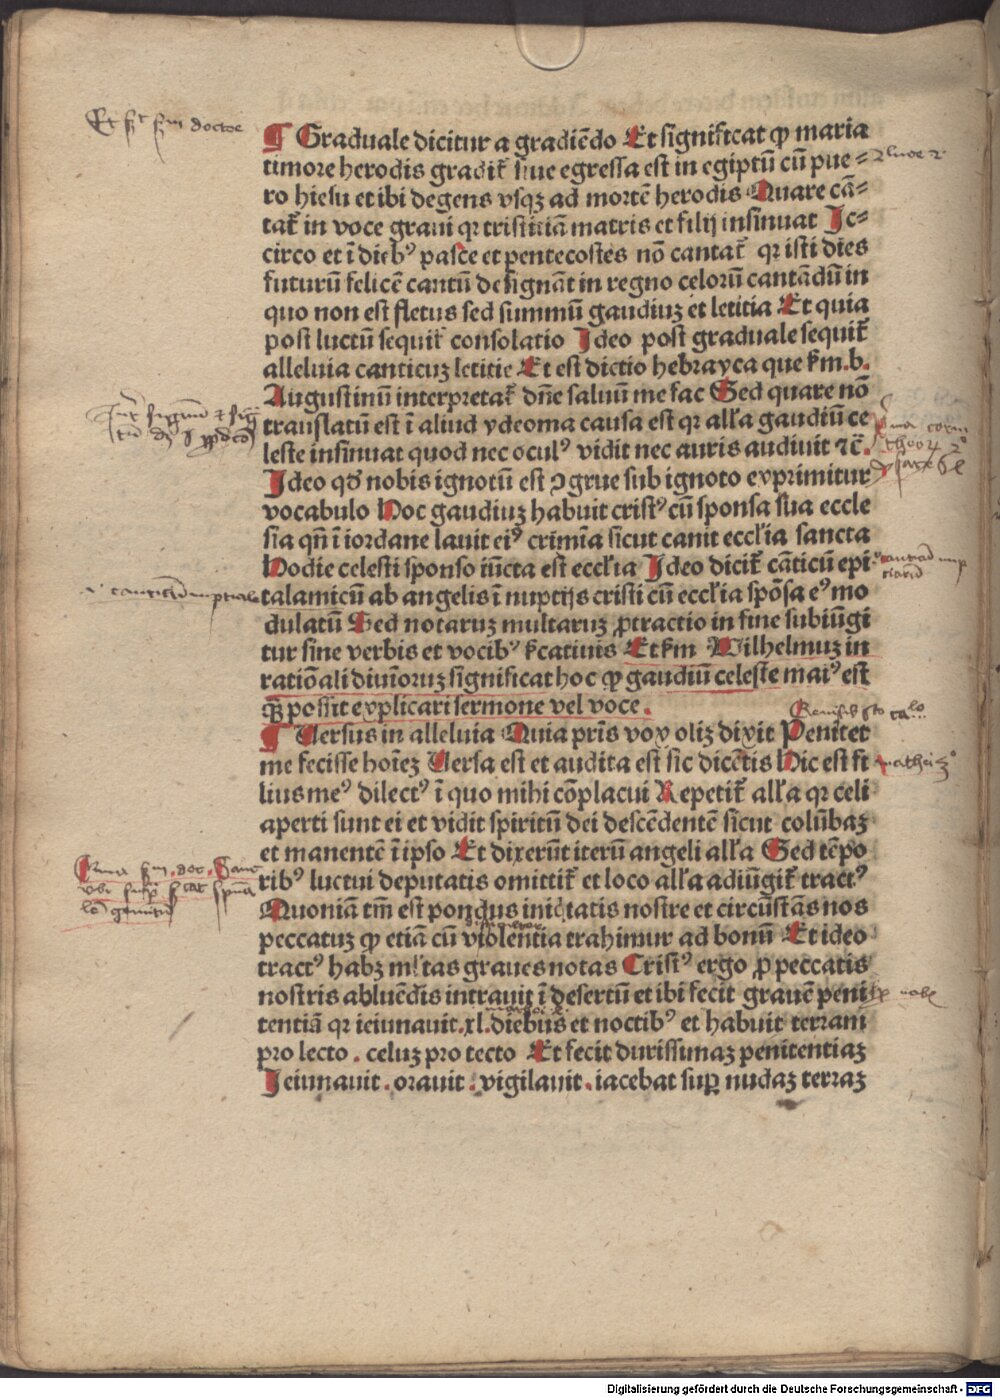 ¶ Graduale dicitur a gradiēdo Et significat ꝙ maria
timore herodis gradit̄ siue egressa est in egiptū cū pue⸗
ro hiesu et ibi degens vsqꝫ ad mortē herodis Quare cā⸗
tat̄ in voce graui qꝛ tristiciā matris et filij insinuat Jc⸗
circo et ī diebꝰ pasce et pentecostes nō cantat̄ qꝛ isti dies
futurū felicē cantū designāt in regno celorū cantādū in
quo non est fletus sed summū gaudiuꝫ et letitia Et quia
post luctū sequit̄ consolatio Jdeo post graduale sequit̄
alleluia canticuꝫ letitie Et est dictio hebrayca que ẜm.b.
Augustinū interpretat̄ dn̄e saluū me fac Sed quare nō
translatū est ī aliud ydeoma causa est qꝛ all'a gaudiū ce
leste insinuat quod nec oculꝰ vidit nec auris audiuit ⁊c̄.
Jdeo qd̓ nobis ignotū est ↄgrue sub ignoto exprimitur
vocabulo Hoc gaudiuꝫ habuit cristꝰ cū sponsa sua eccle
sia qn̄ ī iordane lauit eiꝰ crimīa sicut canit eccl'ia sancta
Hodie celesti sponso iūcta est eccl'ia Jdeo dicit̄ cāticū epi
talamicū ab angelis ī nuptijs cristi cū eccl'ia spōsa eꝰ mo
dulatū Sed notaruꝫ multaruꝫ ꝓtractio in fine subiūgi
tur sine verbis et vocibꝰ ẜcatiuis Et ẜm Wilhelmuꝫ in
rationali diuioruꝫ significat hoc ꝙ gaudiū celeste maiꝰ est
qꝫ possit explicari sermone vel voce.
¶ Versus in alleluia Quia pr̄is vox oliꝫ dixit Penitet
me fecisse hoīeꝫ Versa est et audita est sic dicētis Hic est fi
lius meꝰ dilectꝰ ī quo mihi cōplacui Repetit̄ all'a qꝛ celi
aperti sunt ei et vidit spiritū dei descēdentē sicut colūbaꝫ
et manentē ī ipso Et dixerūt iterū angeli all'a Sed tēpo
ribꝰ luctui deputatis omittit̄ et loco all'a adiūgit̄ tractꝰ
Quoniā tm̄ est pondus iniqͥtatis nostre et circūstās nos
peccatuꝫ ꝙ etiā cū violentia trahimur ad bonū Et ideo
tractꝰ habꝫ ml'tas graues notas Cristꝰ ergo ꝓ peccatis
nostris abluēdis intrauit ī desertū et ibi fecit grauē peni
tentiā qꝛ ieiunauit.xl.diebus et noctibꝰ et habuit terram
pro lecto . celuꝫ pro tecto Et fecit durissimaꝫ penitentiaꝫ
Jeiunauit . orauit . vigilauit . iacebat suꝑ nudaꝫ terraꝫ
Digitalisierung gefördert durch die Deutsche Forschungsgemeinschaft - DFG